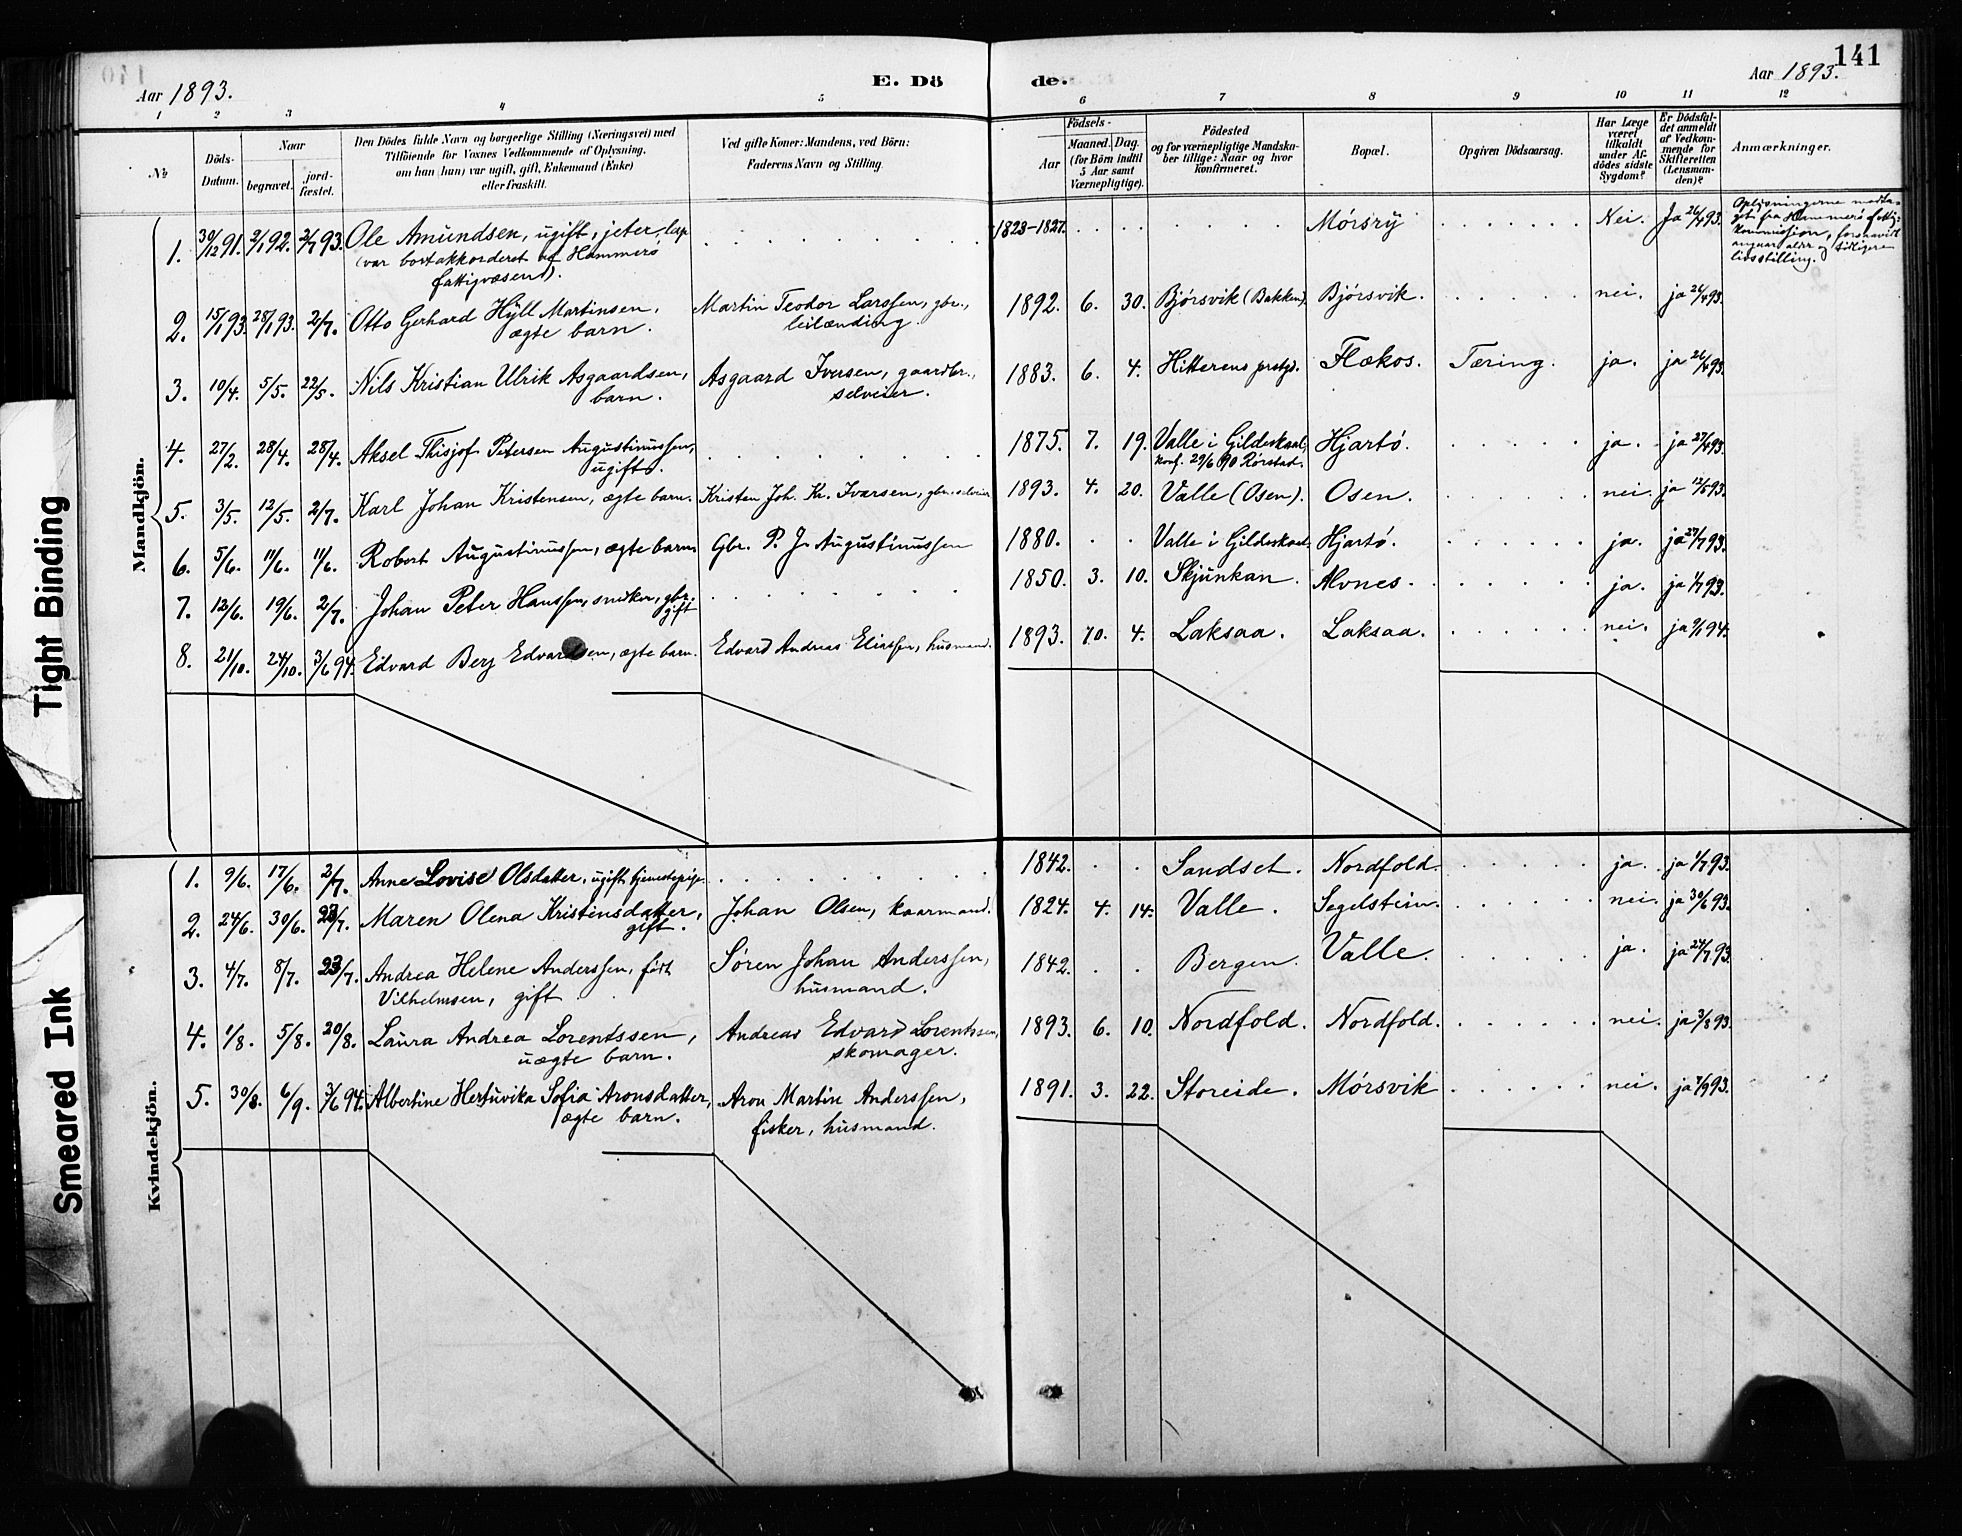 141
Aar 1893.
E. Dö
de.
Aar 1893.
1 2 3 4 5 6 7 8 9 10 11 12
№
Döds-Datum.
Naar
begravet.
jord-fæstet.
Den Dödes fulde Navn og borgerlige Stilling (Næringsvei) med
Tilföiende for Voxnes Vedkommende af Oplysning,
om han (hun) var ugift, gift, Enkemand (Enke)
eller fraskilt.
Ved gifte Koner: Mandens, ved Börn:
Faderens Navn og Stilling.
Födsels-
Aar
Maaned.
Dag.
(for Börn indtil
5 Aar samt
Værnepligtige).
Födested
og for værnepligtige Mandska-
ber tillige: Naar og hvor
konfirmeret.
Bopæl.
Opgiven Dödsaarsag.
Har Læge
været
tilkaldt
under Af-
dödes sidste
Sygdom?
Er Dödsfal-
det anmeldt
af Vedkom-
mende for
Skifteretten
(Lensman-
den)?
Anmærkninger.
Mandkjön.
1. 30/12 91. 2/1 92. 2/7 93. Ole Amundsen, ugift, jeter, lap 1823-1827. Mórsry Nei. Ja 26/4 93.
(var bortakkorderet af Hammerø
fattigvæsen).
Oplysningerne modta-
get fra Hammerø fattig-
kommission, forsaavidt
angaar alder og tidligere
livsstilling.
2. 15/1 93. 28/1 93. 2/7. Otto Gerhard Hyll Martinsen, Martin Teodor Larssen, gbr., 1892. 6. 30. Bjórsvik (Bakken). Bjórsvik. nei. ja 26/4 93.
ægte barn. leilænding.
3. 10/4. 5/5. 22/5. Nils Kristian Ulrik Asgaardsen, Asgaard Iversen, gaardbr., 1883. 6. 4. Hitterens prstgd. Flækos. Tæring. ja. ja 26/4 93.
barn. selveier.
4. 27/2. 28/4. 28/4. Aksel Thisjof Petersen Augustinussen, 1875. 7. 19. Valle i Gildeskaal, Hjartó. ja. ja 27/4 93.
ugift. konf. 29/6 90 Rórstad.
5. 3/5. 12/5. 2/7. Karl Johan Kristensen, ægte barn. Kristen Joh. Kr. Ivarsen, gbr. selveier 1893. 4. 20. Valle (Osen). Osen. nei. ja 12/5 93.
6. 5/6. 11/6. 11/6. Robert Augustinussen, ægte barn Gbr. P. J. Augustinussen 1880. Valle i Gildeskaal. Hjartó. ja. ja 27/7 93.
7. 12/6. 19/6. 2/7. Johan Peter Hanssen, snedker, gbr. 1850. 3. 10. Skjunkan. Alvnes. ja. ja 1/7 93.
gift
8. 21/10. 24/10. 3/6 94. Edvard Berg Edvardsen, ægte barn. Edvard Andreas Eliassen, husmand. 1893. 10. 4. Laksaa. Laksaa. nei. ja 2/1 94.
Kvindekjön.
1. 9/6. 17/6. 2/7. Anne Lovise Olsdatter, ugift tjenestepige. 1842. Sandset. Nordfold. ja. ja 1/7 93.
2. 24/6. 30/6. 23/7. Maren Olena Kristinsdatter, Johan Olsen, kaarmand. 1824. 4. 14. Valle. Segelstein. nei. ja 30/6 93.
gift.
3. 4/7. 8/7. 23/7. Andrea Helene Anderssen, født Søren Johan Anderssen, 1842. Bergen. Valle. ja. ja 24/7 93.
Vilhelmsen, gift husmand.
4. 1/8. 5/8. 20/8. Laura Andrea Lorentssen, Andreas Edvard Lorentssen, 1893. 6. 10. Nordfold. Nordfold. nei. ja 3/8 93.
uægte barn. skomager.
5. 30/8. 6/9. 3/6 94. Albertine Hertuvika Sofia Aronsdatter, Aron Martin Anderssen, 1891. 3. 22. Storeide. Mórsvik nei. ja 7/9 93.
ægte barn. fisker, husmand.
Tight Binding
Smeared Ink